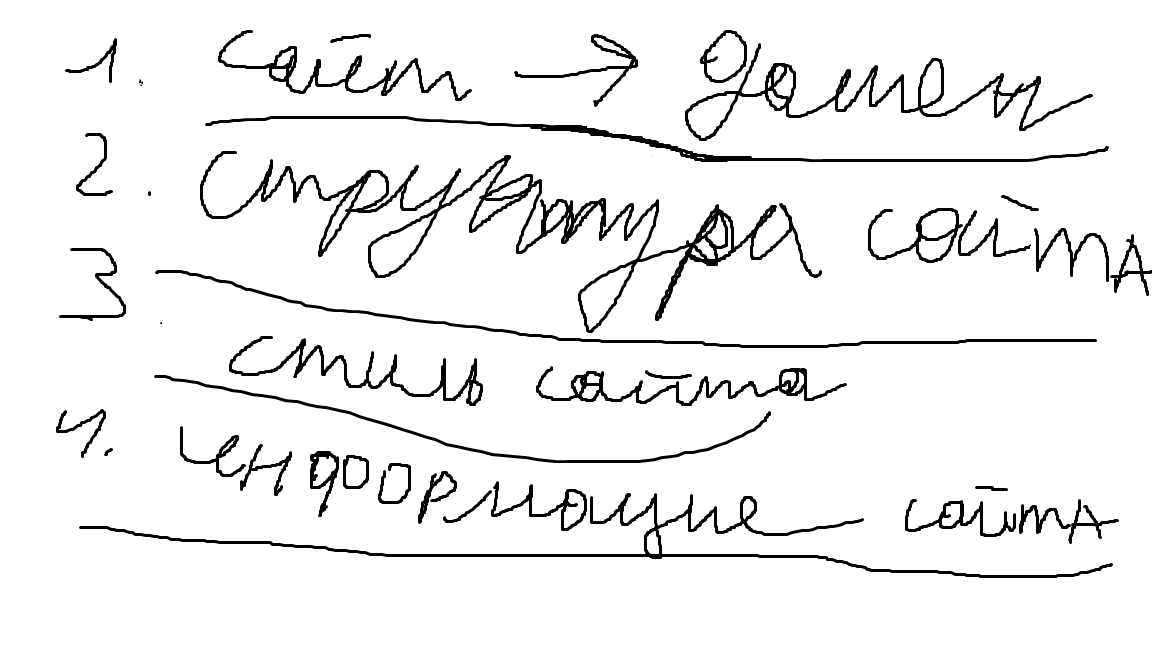 1. сайт → домен
2. структура сайта
3 стиль сайта
4. информацие сайта